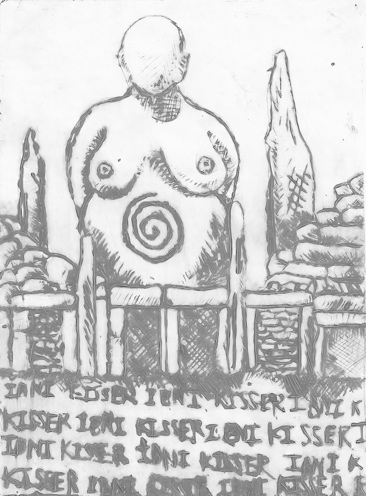 IONI KISSER IONI KISSER IONI K
KISSER IONI KISSER IONI KISSER I
IONI KISSER IONI KISSER IONI K
KISSER IONI KISSER IONI KISSER